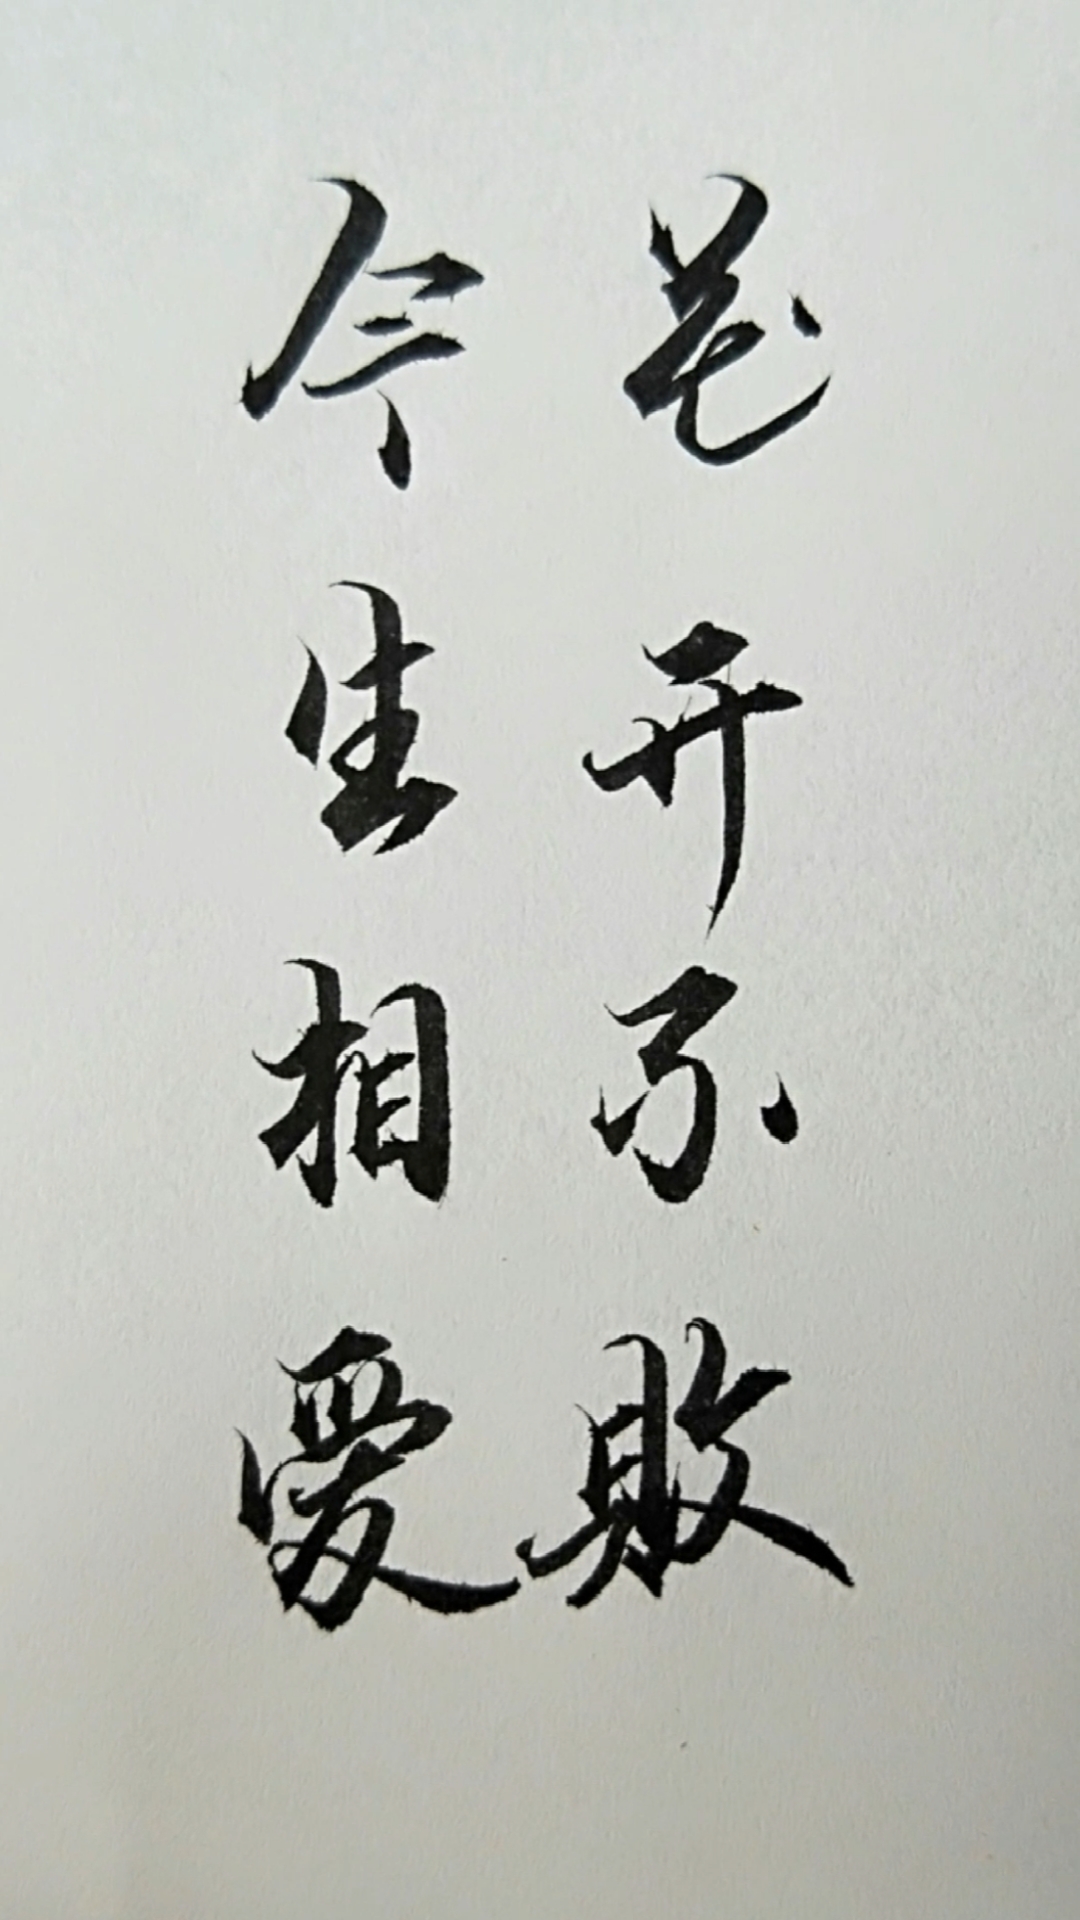 花开不败
今生相爱